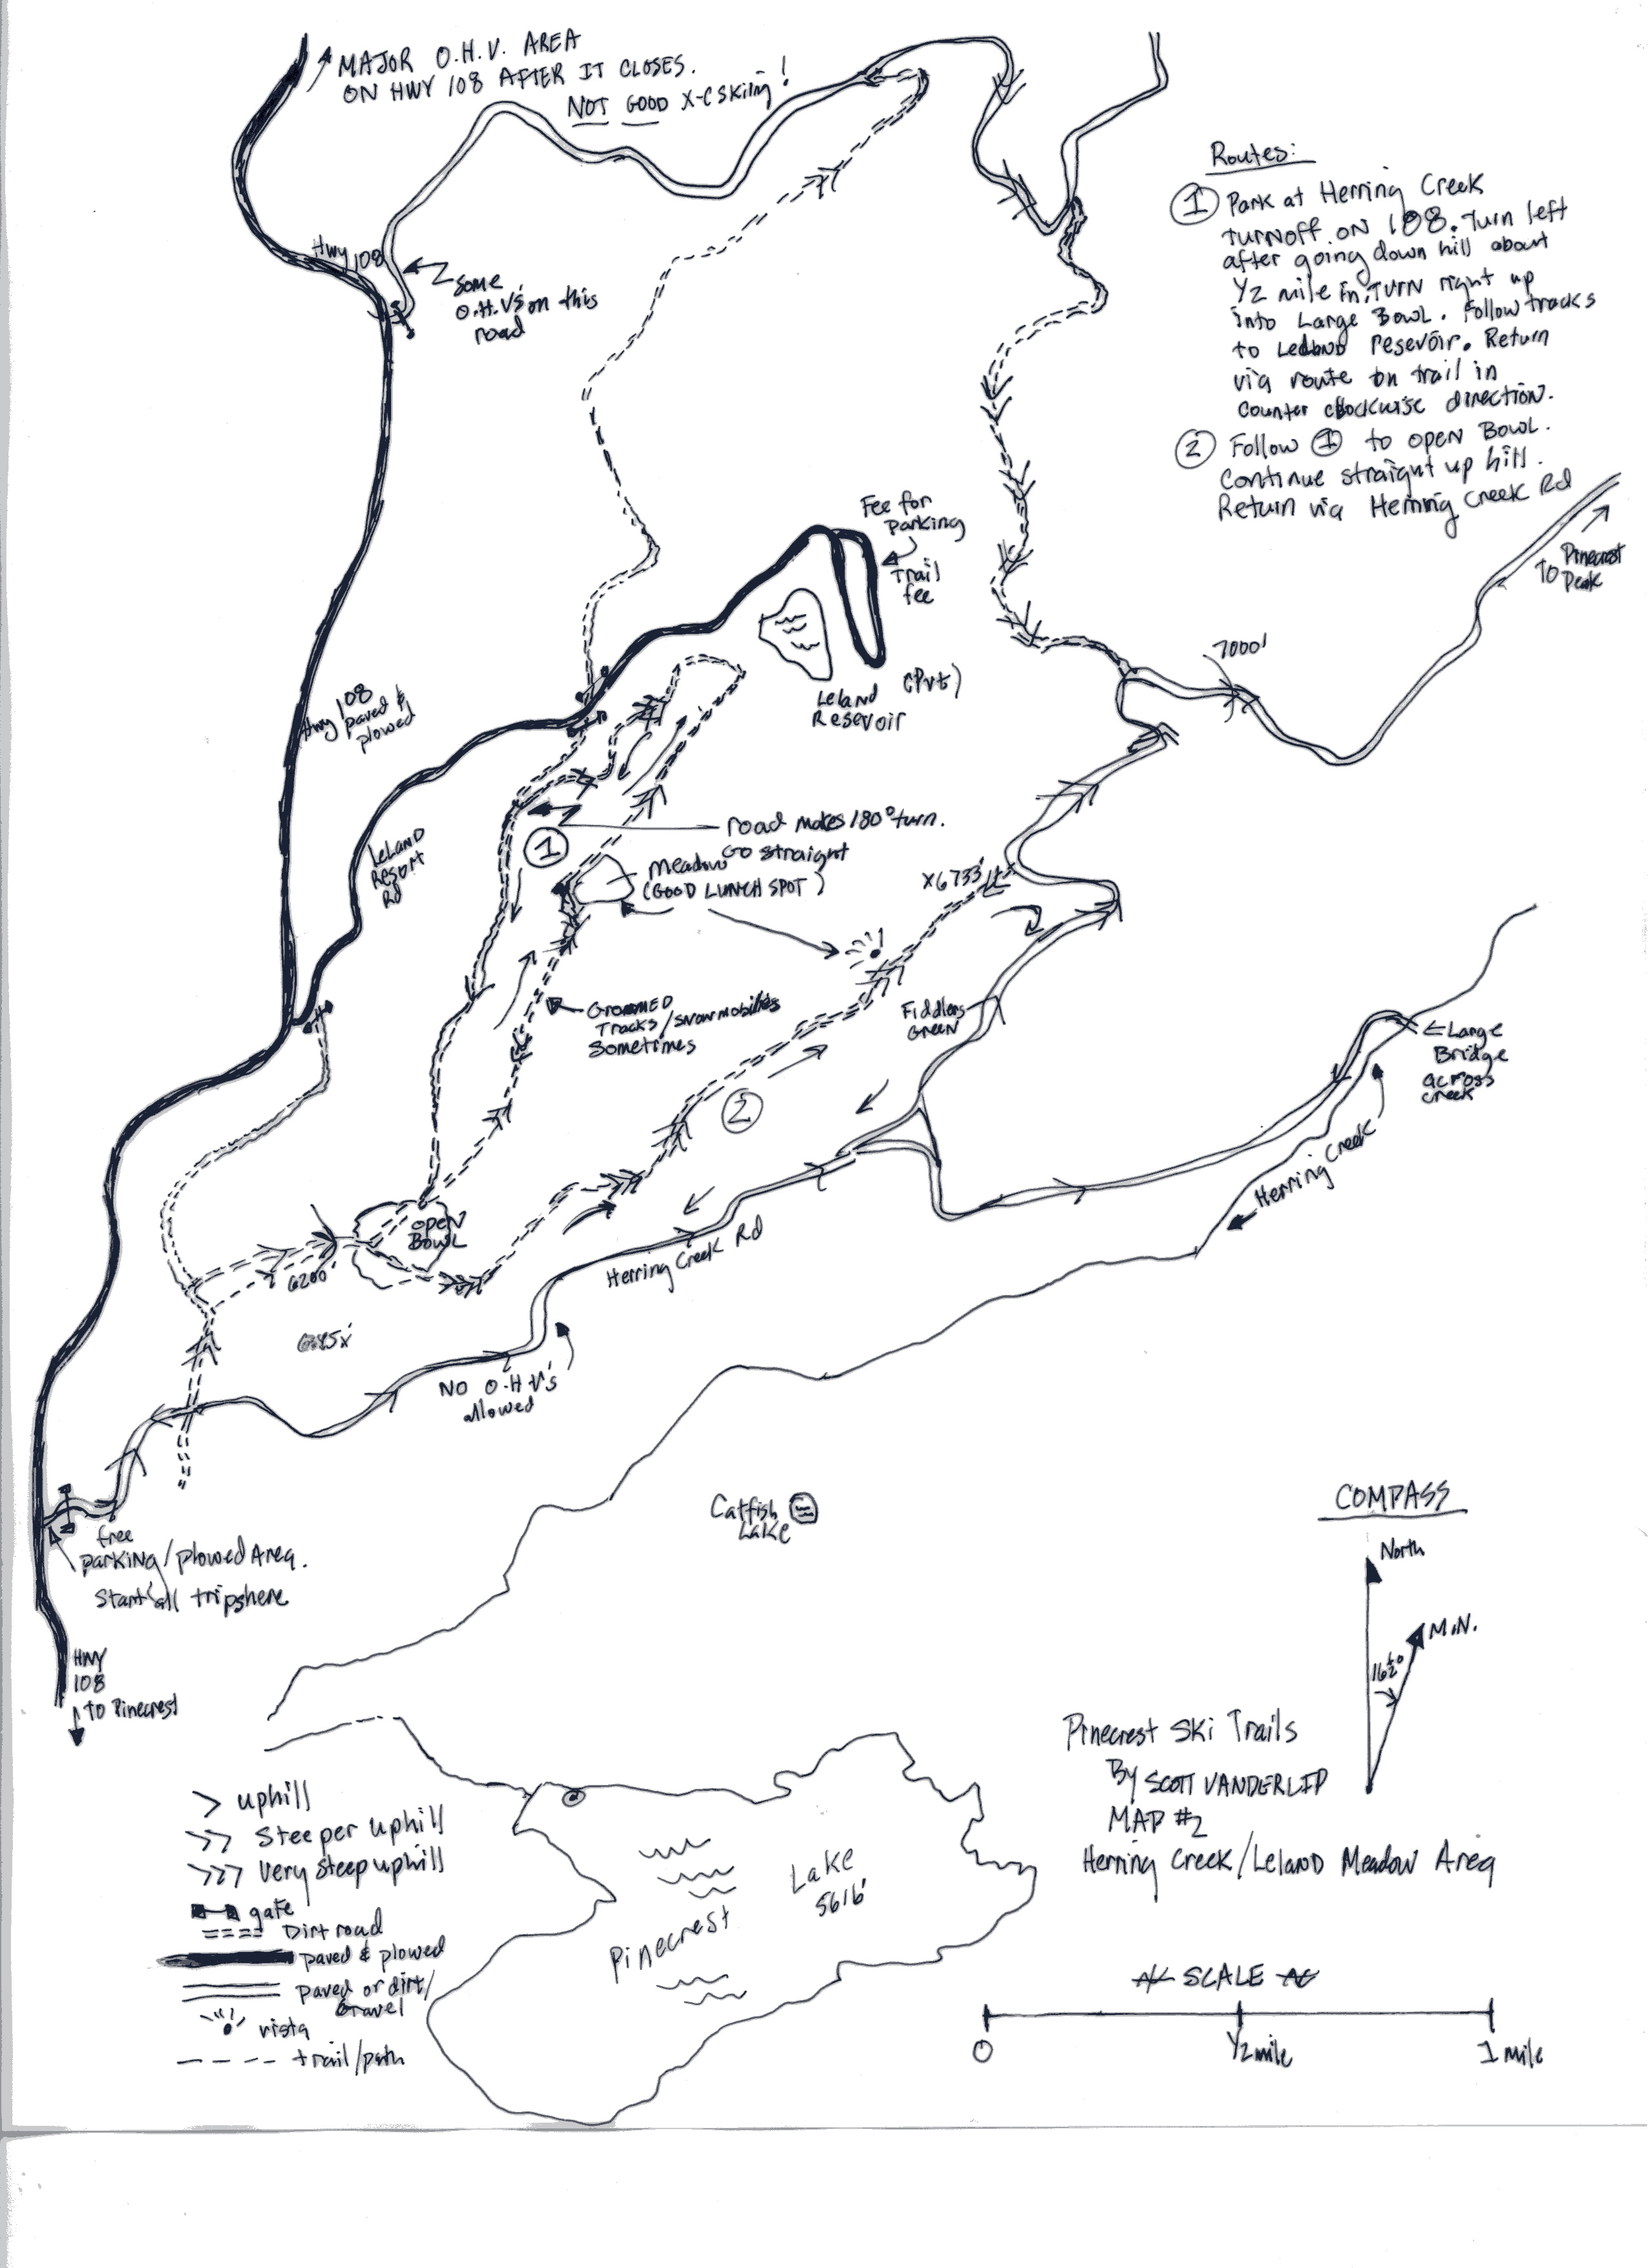 MAJOR O.H.V. AREA
ON HWY 108 AFTER IT CLOSES.
NOT GOOD X-C SKiing!
Routes:
① Park at Herring Creek
Turnoff on 108. Turn left
after going down hill about
1/2 mile in. Turn right up
into Large Bowl. Follow tracks
to Leland reservoir. Return
via route on trail in
Counter clockwise direction.
② Follow ① to open Bowl.
Continue straight up hill.
Return via Herring Creek Rd
Hwy 108
Some
O.H.V's on this
road
Fee for
parking
Trail
fee
To Pinecrest
Peak
7000'
Leland (Pvt)
Reservoir
Hwy 108
paved &
plowed
Leland
Resort
Rd
road makes 180° turn.
Go straight
①
Meadow
(GOOD LUNCH SPOT)
X6733'
Groomed
Tracks/snowmobiles
Sometimes
Fiddlers
Green
←Large
Bridge
across
Creek
②
Herring Creek
open
Bowl
Herring Creek Rd
6200'
NO O.H.V's
allowed
Catfish
Lake
free
parking/plowed Area.
Start all trips here
HWY
108
to Pinecrest
COMPASS
North
M.N.
16½°
Pinecrest Ski Trails
By SCOTT VANDERLIP
MAP #2
Herring Creek/Leland Meadow Area
> uphill
>> Steeper uphill
>>> very steep uphill
gate
Dirt road
paved & plowed
paved or dirt/
Gravel
vista
trail/path
Lake
5616'
Pinecrest
SCALE
0 1/2 mile 1 mile